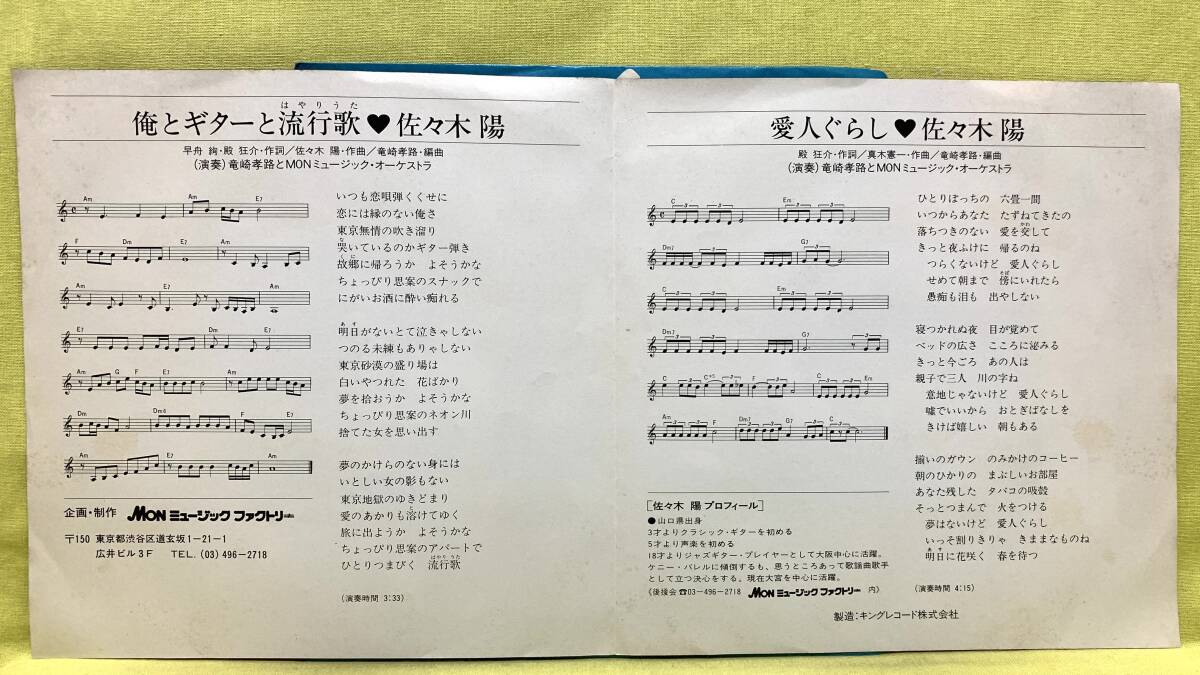 はやりうた
俺とギターと流行歌♥佐々木 陽
早舟 絢・殿 狂介・作詞／佐々木 陽・作曲／竜崎孝路・編曲
（演奏）竜崎孝路とMONミュージック・オーケストラ
Am Am E7
F Dm E7 Am
Am E7 Am
E7 Dm E7
Am G F E7 Am
Dm Dm6 F E7
Am E7 Am
いつも恋唄弾くくせに
恋には縁のない俺さ
東京無情の吹き溜り
な
哭いているのかギター弾き
くに
故郷に帰ろうか よそうかな
ちょっぴり思案のスナックで
にがいお酒に酔い痴れる
あす
明日がないとて泣きゃしない
つのる未練もありゃしない
東京砂漠の盛り場は
白いやつれた 花ばかり
夢を拾おうか よそうかな
ちょっぴり思案のネオン川
捨てた女を思い出す
夢のかけらのない身には
いとしい女の影もない
東京地獄のゆきどまり
と
愛のあかりも溶けてゆく
旅に出ようか よそうかな
ちょっぴり思案のアパートで
はやりうた
ひとりつまびく 流行歌
（演奏時間 3:33）
企画・制作 MONミュージック ファクトリー
〒150 東京都渋谷区道玄坂1-21-1
広井ビル3F TEL. (03) 496-2718
愛人ぐらし♥佐々木 陽
殿 狂介・作詞／真木憲一・作曲／竜崎孝路・編曲
（演奏）竜崎孝路とMONミュージック・オーケストラ
C Em
Dm7 G7
C Em
Dm7 G7
C C+5 F C Em
Am F Dm7 G7 C
ひとりぼっちの 六畳一間
いつからあなた たずねてきたの
かわ
落ちつきのない 愛を交して
きっと夜ふけに 帰るのね
つらくないけど 愛人ぐらし
そば
せめて朝まで 傍にいれたら
愚痴も泪も 出やしない
寝つかれぬ夜 目が覚めて
ベッドの広さ こころに泌みる
きっと今ごろ あの人は
親子で三人 川の字ね
意地じゃないけど 愛人ぐらし
嘘でいいから おとぎばなしを
きけば嬉しい 朝もある
揃いのガウン のみかけのコーヒー
朝のひかりの まぶしいお部屋
あなた残した タバコの吸殻
そっとつまんで 火をつける
夢はないけど 愛人ぐらし
いっそ割りきりゃ きままなものね
あす
明日に花咲く 春を待つ
（演奏時間 4:15）
［佐々木 陽 プロフィール］
●山口県出身
3才よりクラシック・ギターを初める
5才より声楽を初める
18才よりジャズギター・プレイヤーとして大阪中心に活躍。
ケニー・バレルに傾倒するも、思うところあって歌謡曲歌手
として立つ決心をする。現在大宮を中心に活躍。
《後援会☎03-496-2718 MONミュージック ファクトリー 内》
製造：キングレコード株式会社